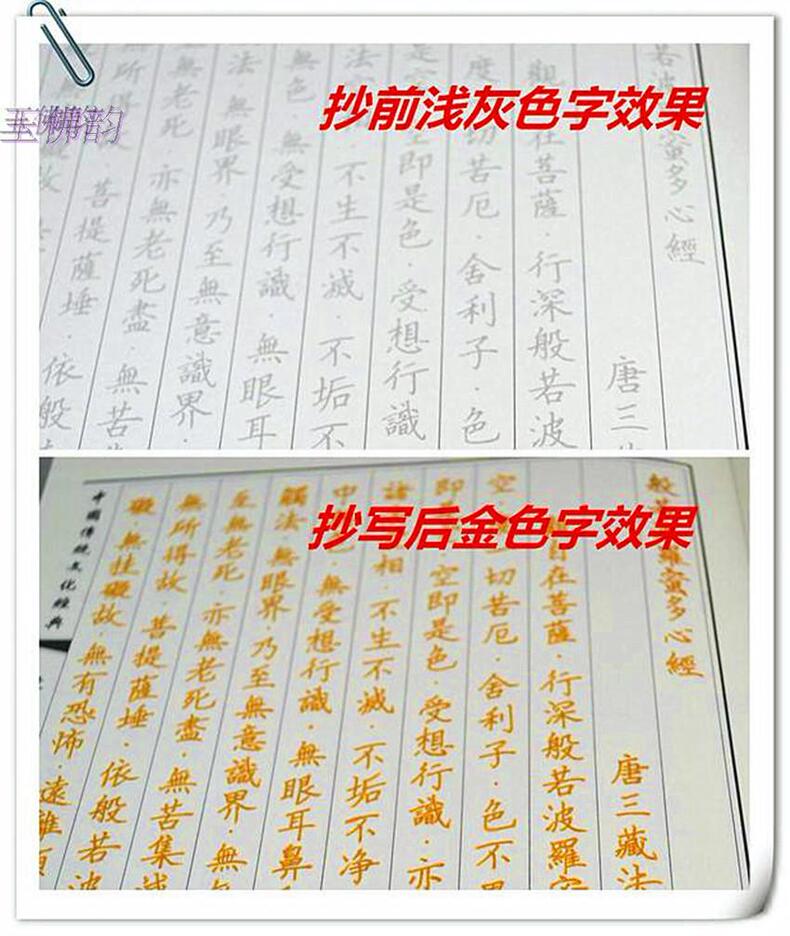 玉佛韵
抄前浅灰色字效果
若波 蜜多心經
唐三
觀 在菩薩·行深般若波
度 切苦厄·舍利子·色
是 空即是色·受想行識
法 ·不生不滅·不垢不
無色·無受想行識·無眼耳
法·無眼界·乃至無意識界·
無老死·亦無老死盡·無苦
無所得 菩提薩埵·依般
礙故
抄写后金色字效果
般 羅蜜多心經
唐三藏法
自在菩薩·行深般若波羅
空 切苦厄·舍利子·色不
即 空即是色·受想行識·亦
諸 相·不生不滅·不垢不净
中 色·無受想行識·無眼耳鼻
觸法·無眼界·乃至無意識界·無
至無老死·亦無老死盡·無苦集滅
無所得故·菩提薩埵·依般若波
礙·無挂礙故·無有恐怖·遠離
中國傳統文化經典